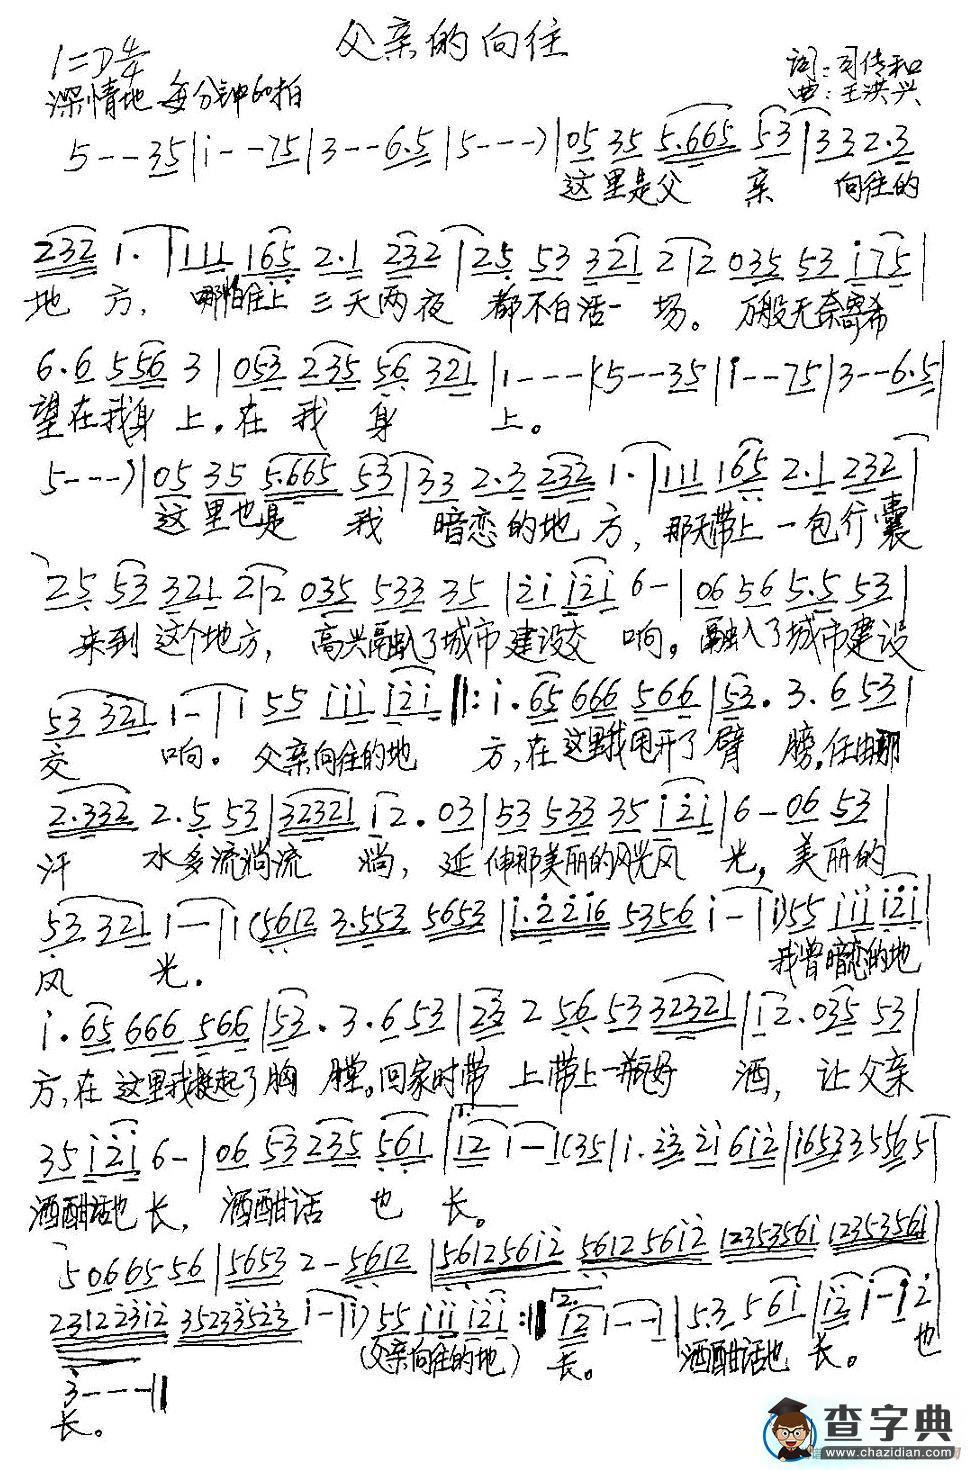 父亲的向往
1=D 4/4
词：司传和
深情地 每分钟60拍
曲：王洪兴
5---35|i--75|3---6.5|5---)|05 35 5.665 53|332.3
这里是父 亲 向往的
232 1.|111 165 2.1 232|25 53 321 2|2 035 53 i75|
地 方， 哪怕住上 三天两夜 都不白活一 场。 万般无奈寄希
6.6 556 3|053 235 56 321|1----|(5---35|i--75|3--6.5|
望在我身 上。在 我 身 上。
5---)|05 35 5.665 53|33 2.3 232 1.|111 165 2.1 232|
这里也是 我 暗恋的地 方， 那天带上 一包行囊
25 53 321 2|2 035 533 35|2i i2i 6-|06 56 5.5 53|
来到 这个地方， 高兴融入了城市 建设交 响。融入了城市建设
53 321 1-|i 55 iii i2i ‖:i.65 666 566|53.3.6 53|
交 响。 父亲向往的地 方，在这里我甩开了 臂 膀。任由那
2.332 2.5 53|32321 i2.03|53 533 35 i2i|6-06 53|
汗 水多流淌流 淌， 延伸那美丽的风光风 光，美丽的
53 321 1--|i(5612 3.553 5653|i.22i6 5356 i-|i)55 iii i2i|
风 光。 我曾暗恋的地
i.65 666 566|53.3.6 53|23 2 56 53 32321|i2.035 53|
方，在 这里我挺起了胸 膛。回家时带 上带上一瓶好 酒， 让父亲
35 i2i 6-|06 53 235 561|i2 i-|(35|i.23 2i 6i2|i6533556 5|
酒酣话也 长， 酒酣话 也 长。
5 066556|5653 2-5612|561256i2 561256i2 1235356i 1235356i|
231223i2 35233523 i-|i)55 iii i2i:‖2. i2 i--|5.3 56i|i2 i-i2|
(父亲向往的地) 长。 酒酣话也 长。 也
3---‖
长。
查字典
www.chazidian.com